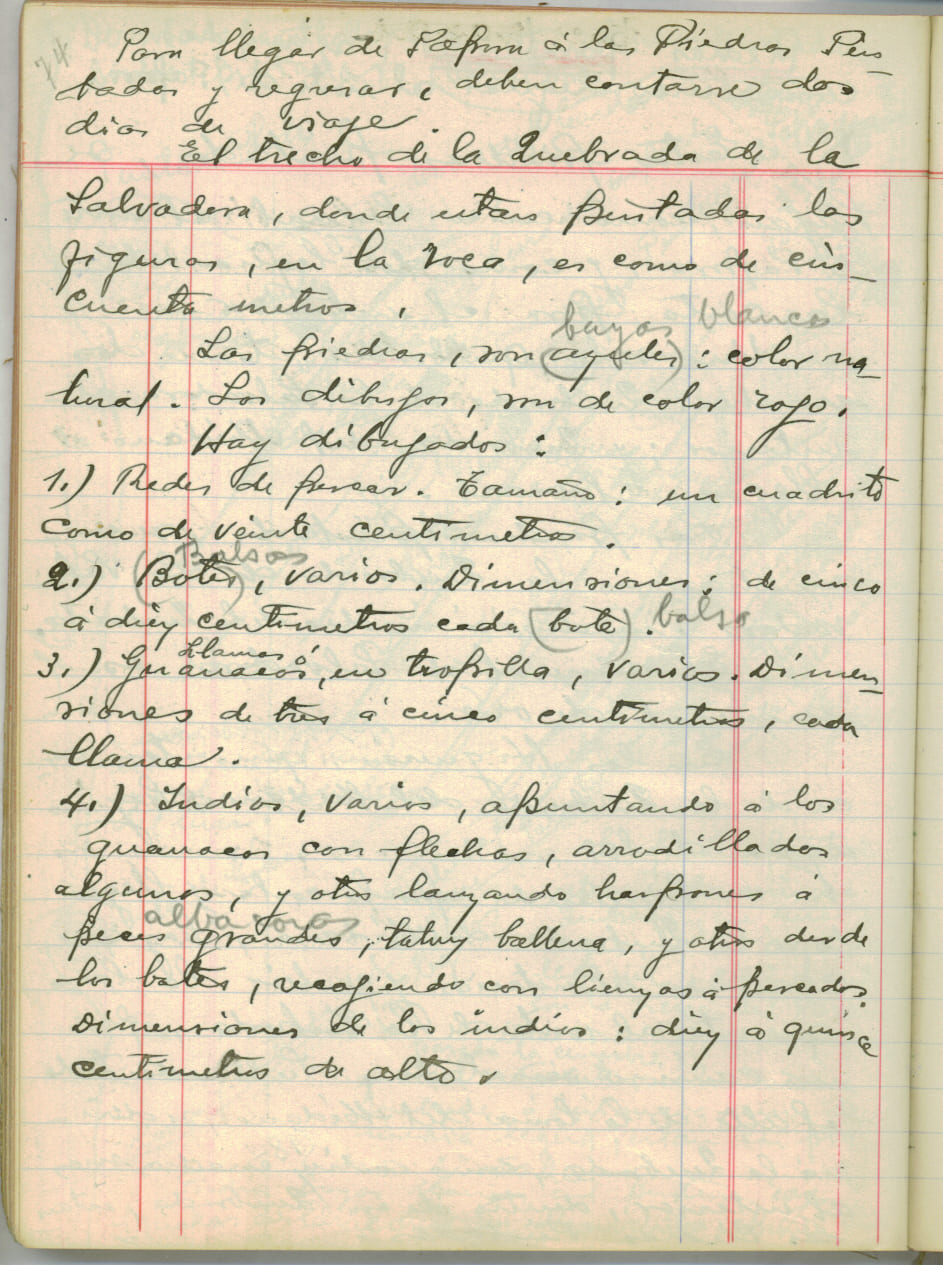 74
Para llegar de Taltal á las Piedras Pin-
tadas y regresar, deben contarse dos
dias de viaje.
El trecho de la Quebrada de la
Salvadora, donde estan pintadas las
figuras, en la roca, es como de cin-
cuenta metros.
bayas blancas
Las piedras, son (azules) : color na-
tural. Los dibujos, son de color rojo.
Hay dibujados :
1.) Redes de pescar. Tamaño : un cuadrito
como de veinte centimetros.
Balsas
2.) (Botes), varios. Dimensiones : de cinco
á diez centimetros cada (bote). balsa
Llamas ó
3.) Guanacos, en tropilla, varios. Dimen-
siones de tres á cinco centimetros, cada
llama.
4.) Indios, varios, apuntando á los
guanacos con flechas, arrodillados
algunos, y otros lanzando harpones á
albacoras
peces grandes, talvez ballena, y otros desde
los botes, recojiendo con lienzas á pescados.
Dimensiones de los indios : diez á quince
centimetros de alto.